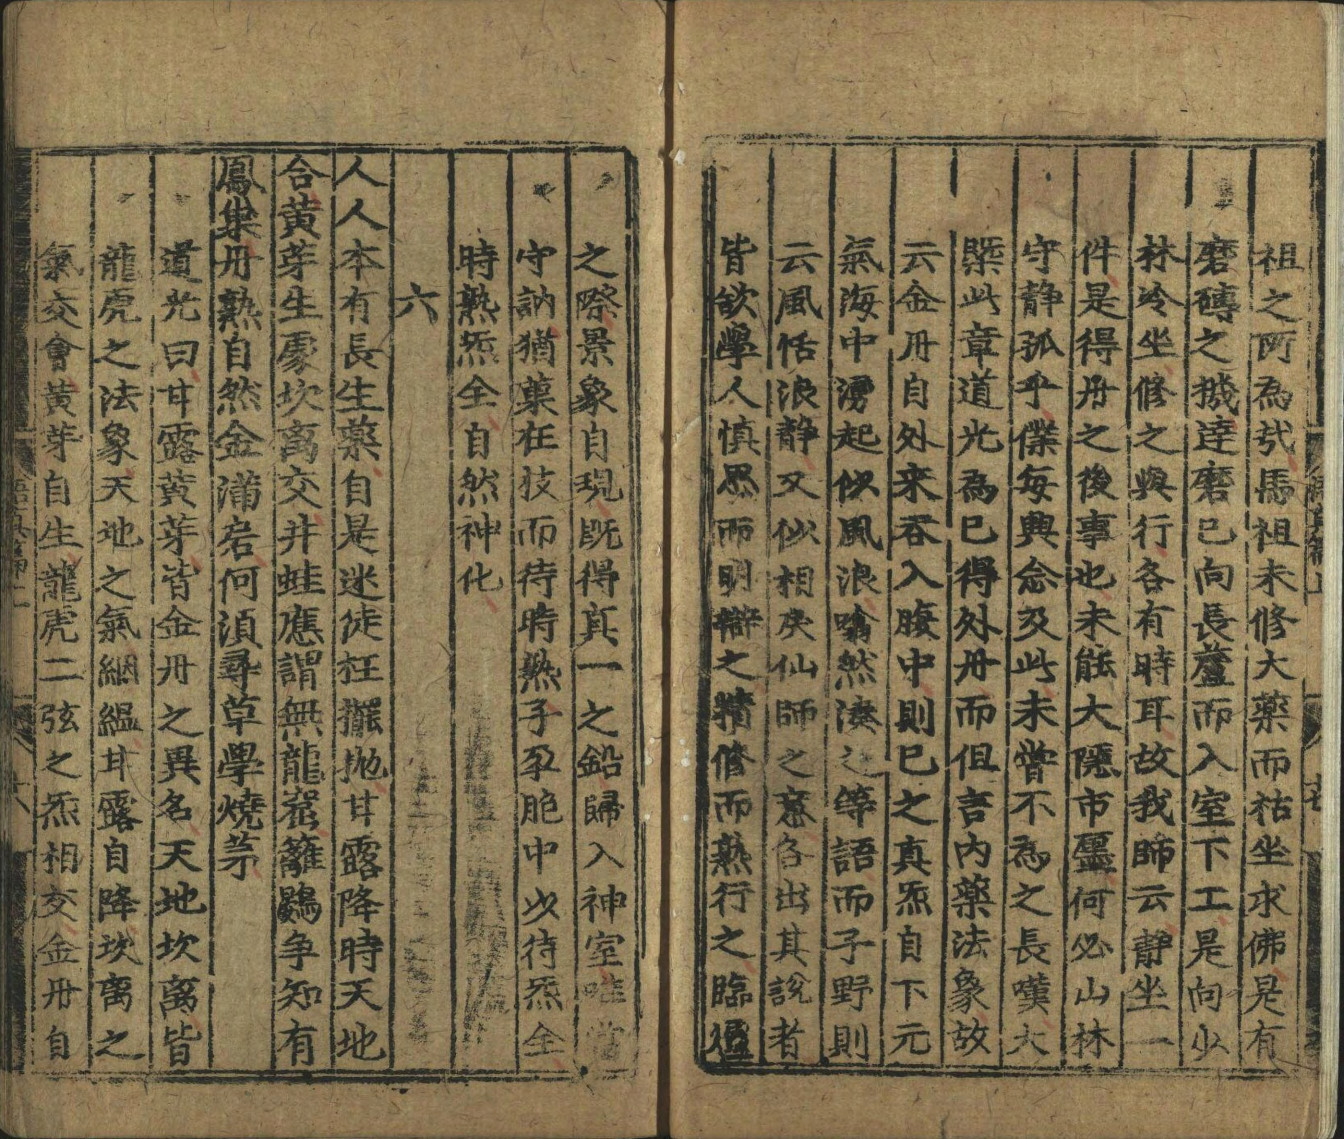 祖之所為哉馬祖未修大藥而祜坐求佛是有
磨磚之機達磨已向長蘆而入室下工是向少
林冷坐修之與行各有時耳故我師云靜坐一
件是得丹之後事也未能大隱市㕓何必山林
守靜孤乎僕每興念及此未嘗不為之長嘆大
槩此章道光為已得外丹而但言內藥法象故
云金丹自外來吞入腹中則已之真炁自下元
氣海中湧起似風浪噏然湊之等語而子野則
云風恬浪靜又似相戾仙師之意各出其說者
皆欲學人慎思而明辯之精修而熟行之臨爐
之際景象自現旣得真一之鉛歸入神室唯當
守訥猶菓在技而待時熟子孕胞中必待炁全
時熟炁全自然神化
六
人人本有長生藥自是迷徒枉擺拋甘露降時天地
合黃芽生處坎离交井蛙應謂無龍窟籬鷃争知有
鳳巢丹熟自然金滿屋何湏尋草學燒茅
道光曰甘露黃芽皆金丹之異名天地坎离皆
龍虎之法象天地之氣絪縕甘露自降坎离之
氣交會黃芽自生龍虎二弦之炁相交金丹自
悟真篇上